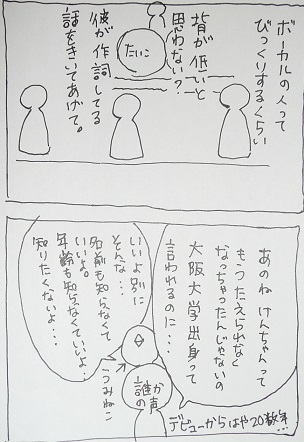 ボーカルの人って
びっくりするくらい
背が低いと
思わない?
彼が作詞してる
話をきいてあげて。
たいこ
あのね けんちゃんって
もうつたえられなく
なっちゃったんじゃないの
大阪大学出身って
言われるのに…
いいよ別に
そんな…
名前も知らなくて
いいよ。
年齢も知らなくていいよ…
知りたくないよ…
うみねこ
誰か
の声
デビューからはや20数年…